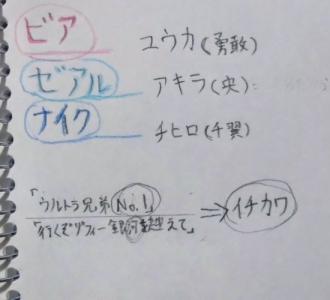 ビア ユウカ(勇敢)
ゼアル アキラ(央)
ナイク チヒロ(千翼)
「ウルトラ兄弟No.1」
「行くぞゾフィー銀河を越えて」 ⇒ イチカワ